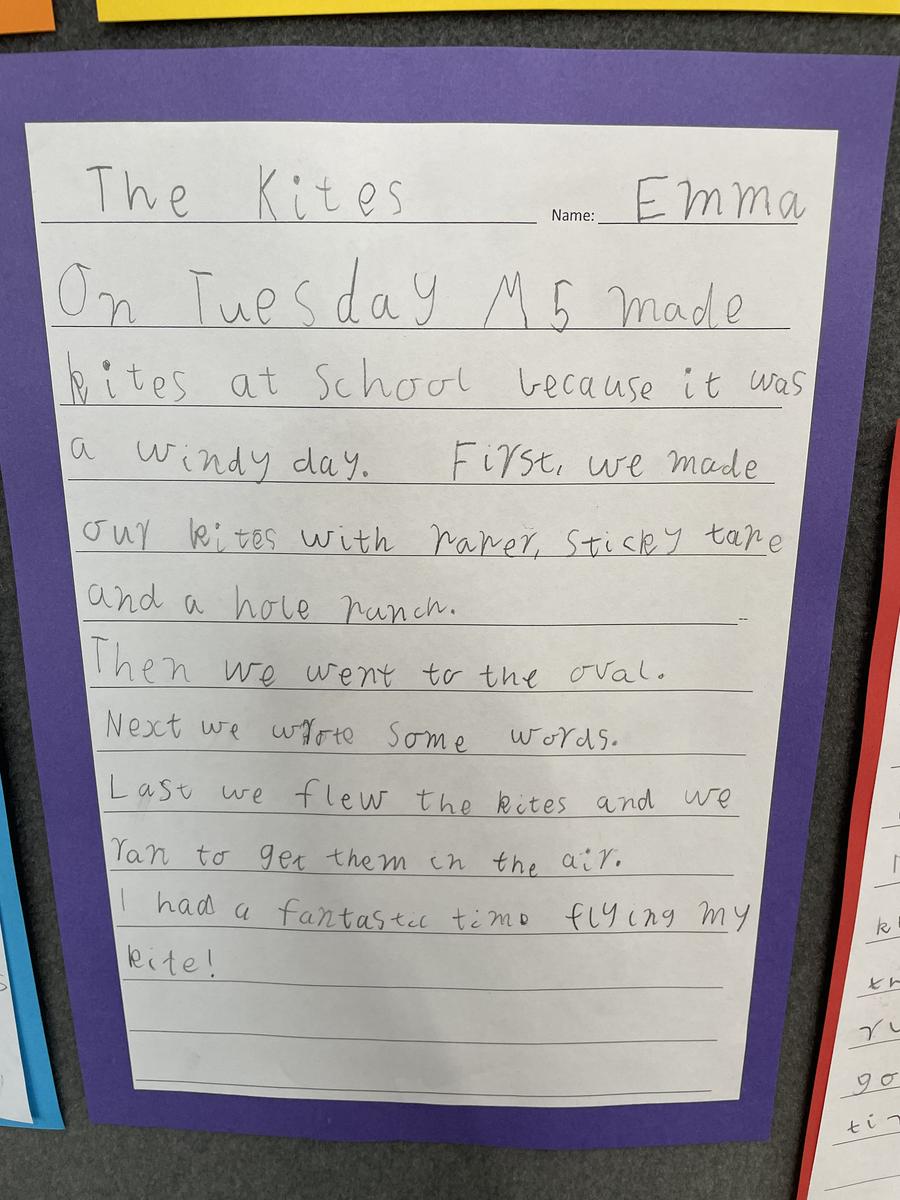 The Kites Name: Emma
On Tuesday M5 made
kites at School because it was
a windy day. First, we made
our kites with paper, sticky tape
and a hole punch.
Then we went to the oval.
Next we wrote some words.
Last we flew the kites and we
ran to get them in the air.
I had a fantastic time flying my
kite!